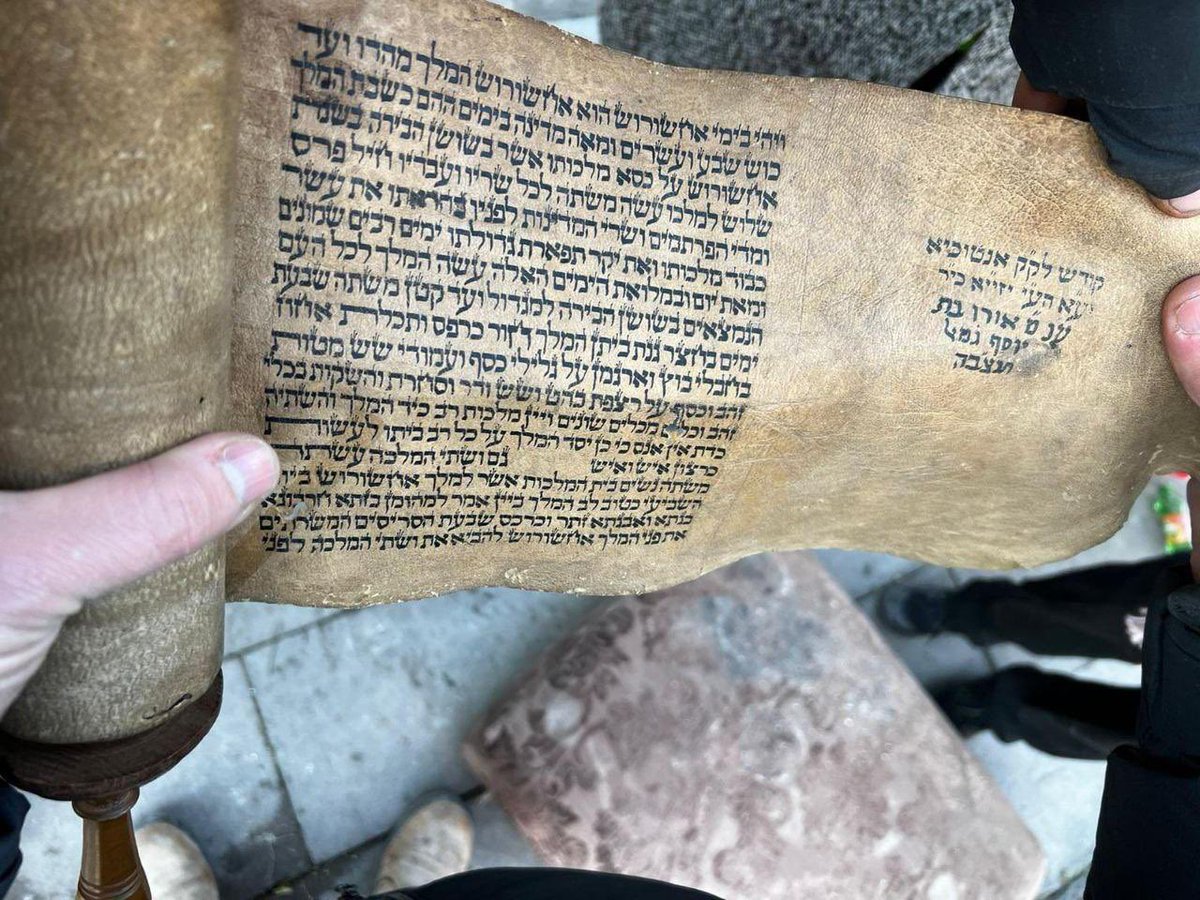 קודש לקק אנטוכיא
העי יזייא כיר
ענ מ אורו בת
יוסף גמל
תנצבה
ויהי בימי אחשורוש הוא אחשורוש המלך מהדו ועד
כוש שבע ועשרים ומאה מדינה בימים ההם כשבת המלך
אחשורוש על כסא מלכותו אשר בשושן הבירה בשנת
שלוש למלכו עשה משתה לכל שריו ועבדיו חיל פרס
ומדי הפרתמים ושרי המדינות לפניו בהראתו את עשר
כבוד מלכותו ואת יקר תפארת גדולתו ימים רבים שמונים
ומאת יום ובמלואת הימים האלה עשה המלך לכל העם
הנמצאים בשושן הבירה למגדול ועד קטן משתה שבעת
ימים בחצר גנת ביתן המלך חור כרפס ותכלת אחוז
בחבלי בוץ וארגמן על גלילי כסף ועמודי שש מטות
זהב וכסף על רצפת בהט ושש ודר וסחרת והשקות בכלי
זהב וכלים מכלים שונים ויין מלכות רב כיד המלך והשתיה
כדת אין אנס כי כן יסד המלך על כל רב ביתו לעשות
כרצון איש ואיש גם ושתי המלכה עשתה
משתה נשים בית המלכות אשר למלך אחשורוש ביום
השביעי כטוב לב המלך ביין אמר למהומן בזתא חרבונא
בגתא ואבגתא זתר וכרכס שבעת הסריסים המשרתים
את פני המלך אחשורוש להביא את ושתי המלכה לפני